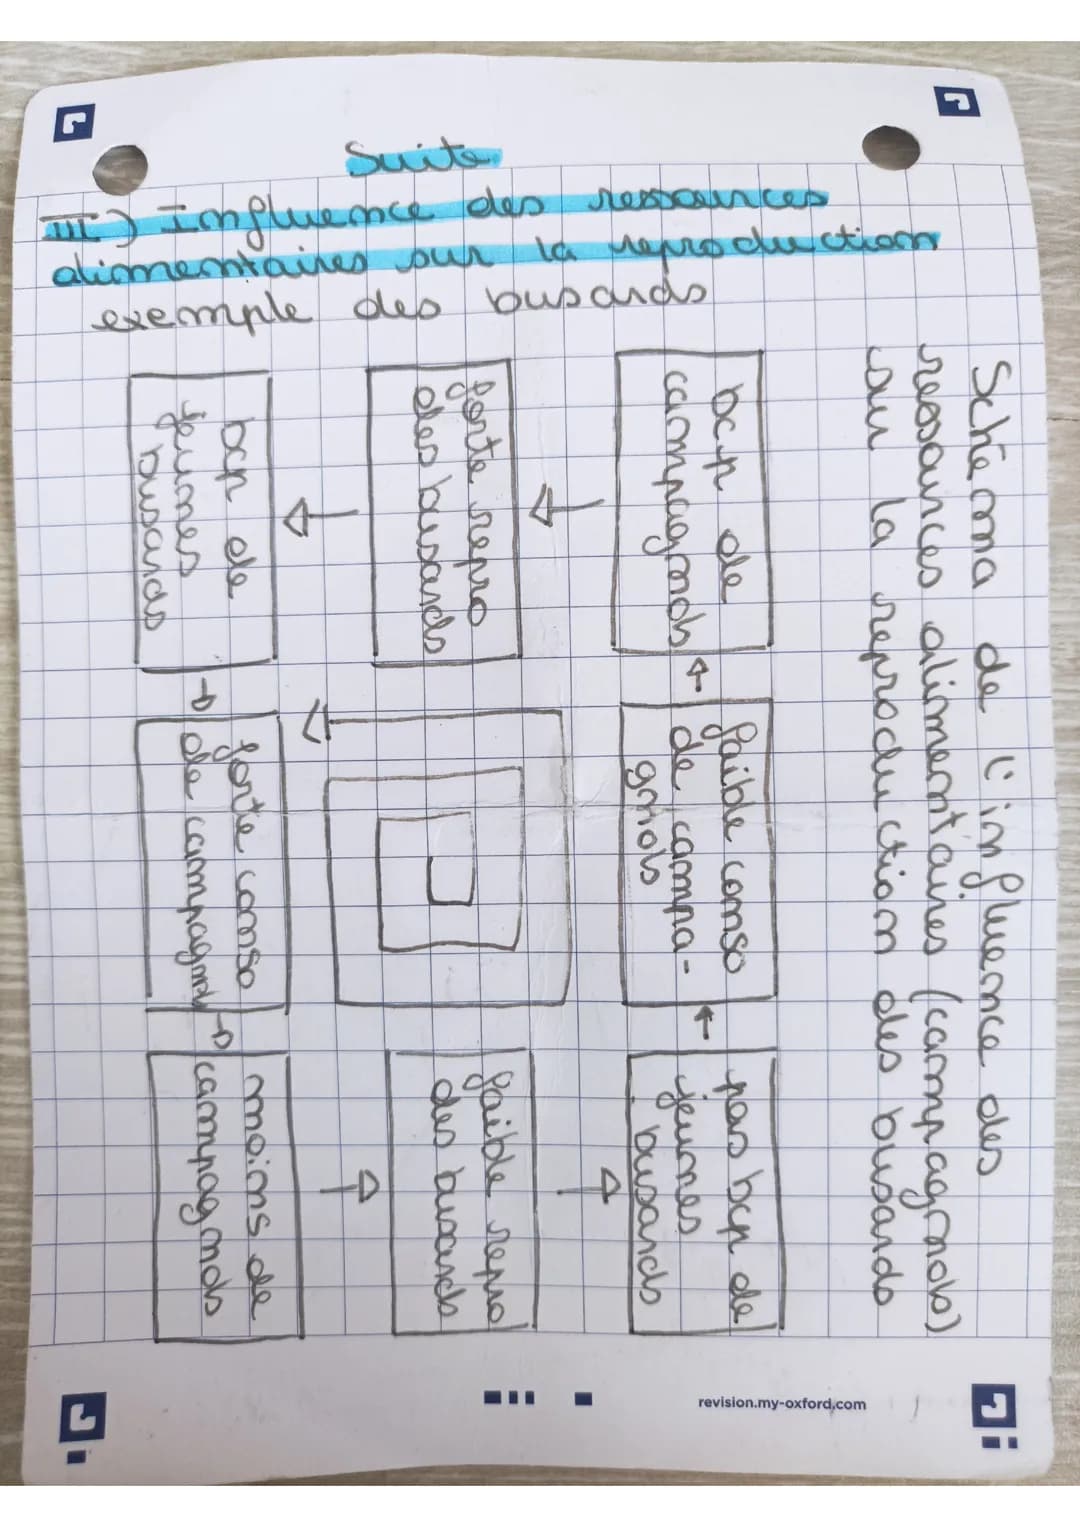 Suite
III) Influence des ressources
alimentaires sur la reproduction
exemple des busards
Schéma de l'influence des
ressources alimentaires (campagnols)
sur la reproduction des busards
bcp de
campagnols
forte repro
des busards
bcp de
jeunes
busards
forte conso
de campagnols
moins de
campagnols
faible repro
des busards
pas bcp de
jeunes
busards
faible conso
de campa-
gnols
revision.my-oxford.com